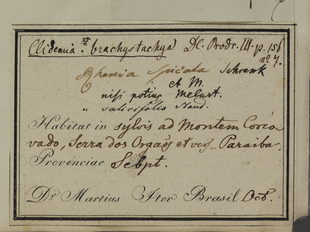 Clidemia brachystachya) DC. Prodr. III. p. 156
n° 7.
Rhexia spicata Schrank
et M.
nisi potius Melast.
" salicifolia Naud.
Habitat in sylvis ad Montem Corcovado, Serra dos Orgaõs et veg. Paraiba.
Provinciae Sebpt.
Dr. Martius Iter Brasil. Oct.